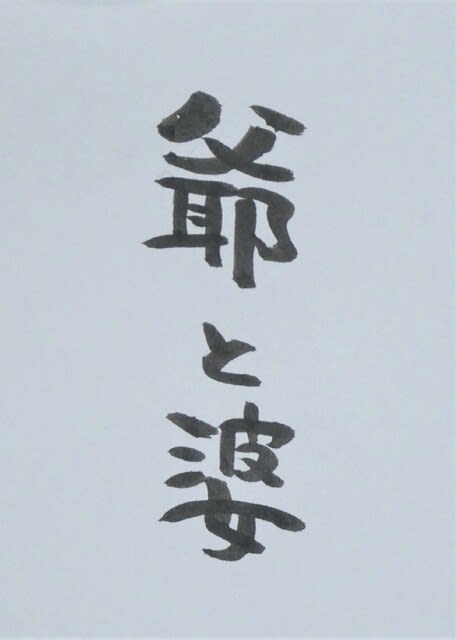 爺と婆